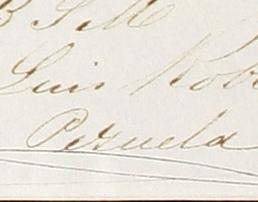 B S M
Luis Rob
Pezuela